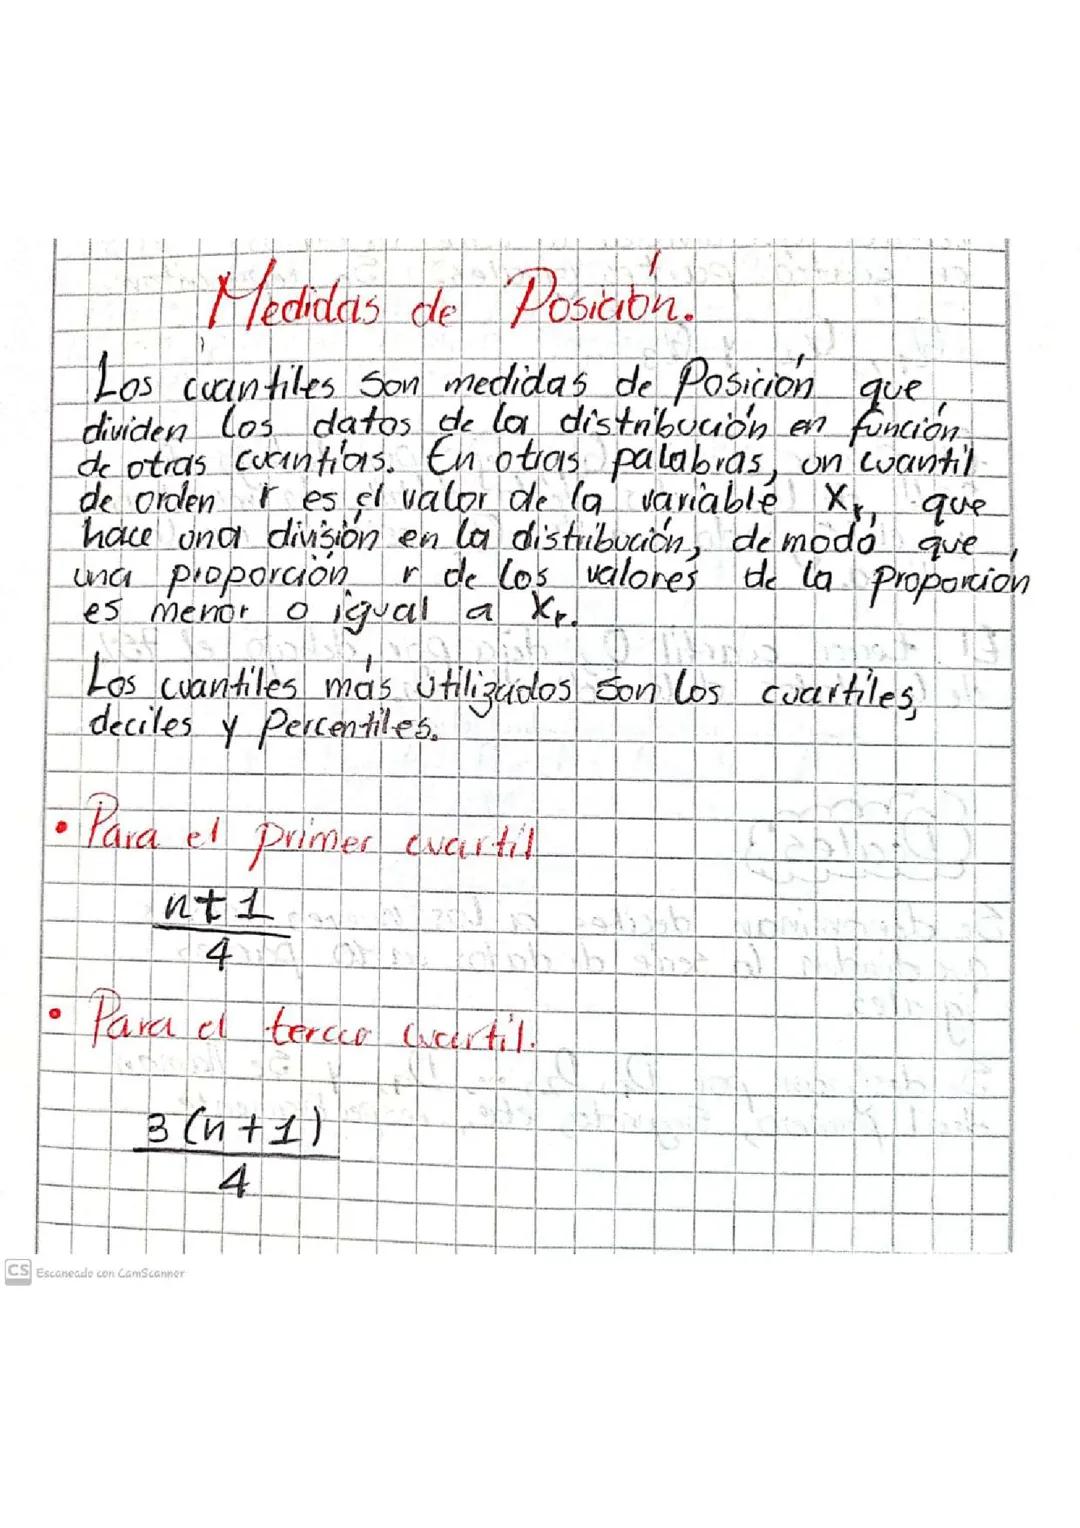 Medidas de Posición.
Los cuantiles son medidas de Posición que
dividen los datos de la distribución en función
de otras cuantías. En otras palabras, un cuantil
de orden r es el valor de la variable Xr, que
hace una división en la distribución, de modo que
una proporción r de los valores de la proporción
es menor o igual a Xr.
Los cuantiles más utilizados son los cuartiles,
deciles y Percentiles.
• Para el primer cuartil
n+1
4
• Para el tercer cuartil.
3(n+1)
4
CS Escaneado con CamScanner